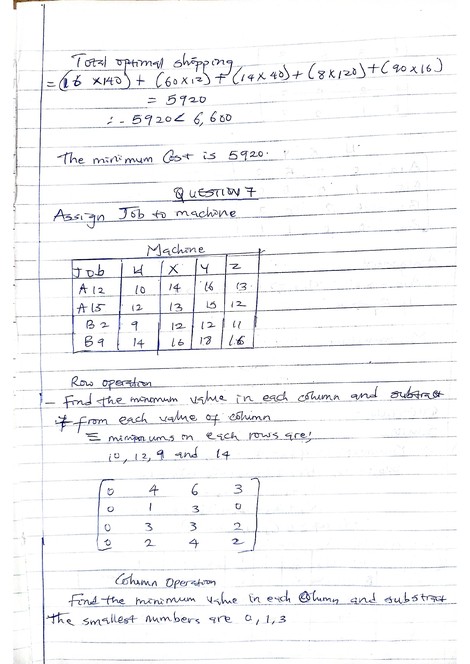 Total optimal shopping
= (16 x140) + (60x12) + (14 x 40) + (8x120) + (90 x 16)
= 5920
∴ 5920 < 6,600
The minimum Cost is 5920.
QUESTION 7
Assign Job to machine
Machine
Job W X Y Z
A12 10 14 16 13
A15 12 13 15 12
B2 9 12 12 11
B9 14 16 18 16
Row operation
- Find the minimum value in each column and substract
from each value of column
= minimums on each rows are;
10, 12, 9 and 14
0 4 6 3
0 1 3 0
0 3 3 2
0 2 4 2
Column Operation
Find the minimum value in each Column and substract
the smallest numbers are 0, 1, 3